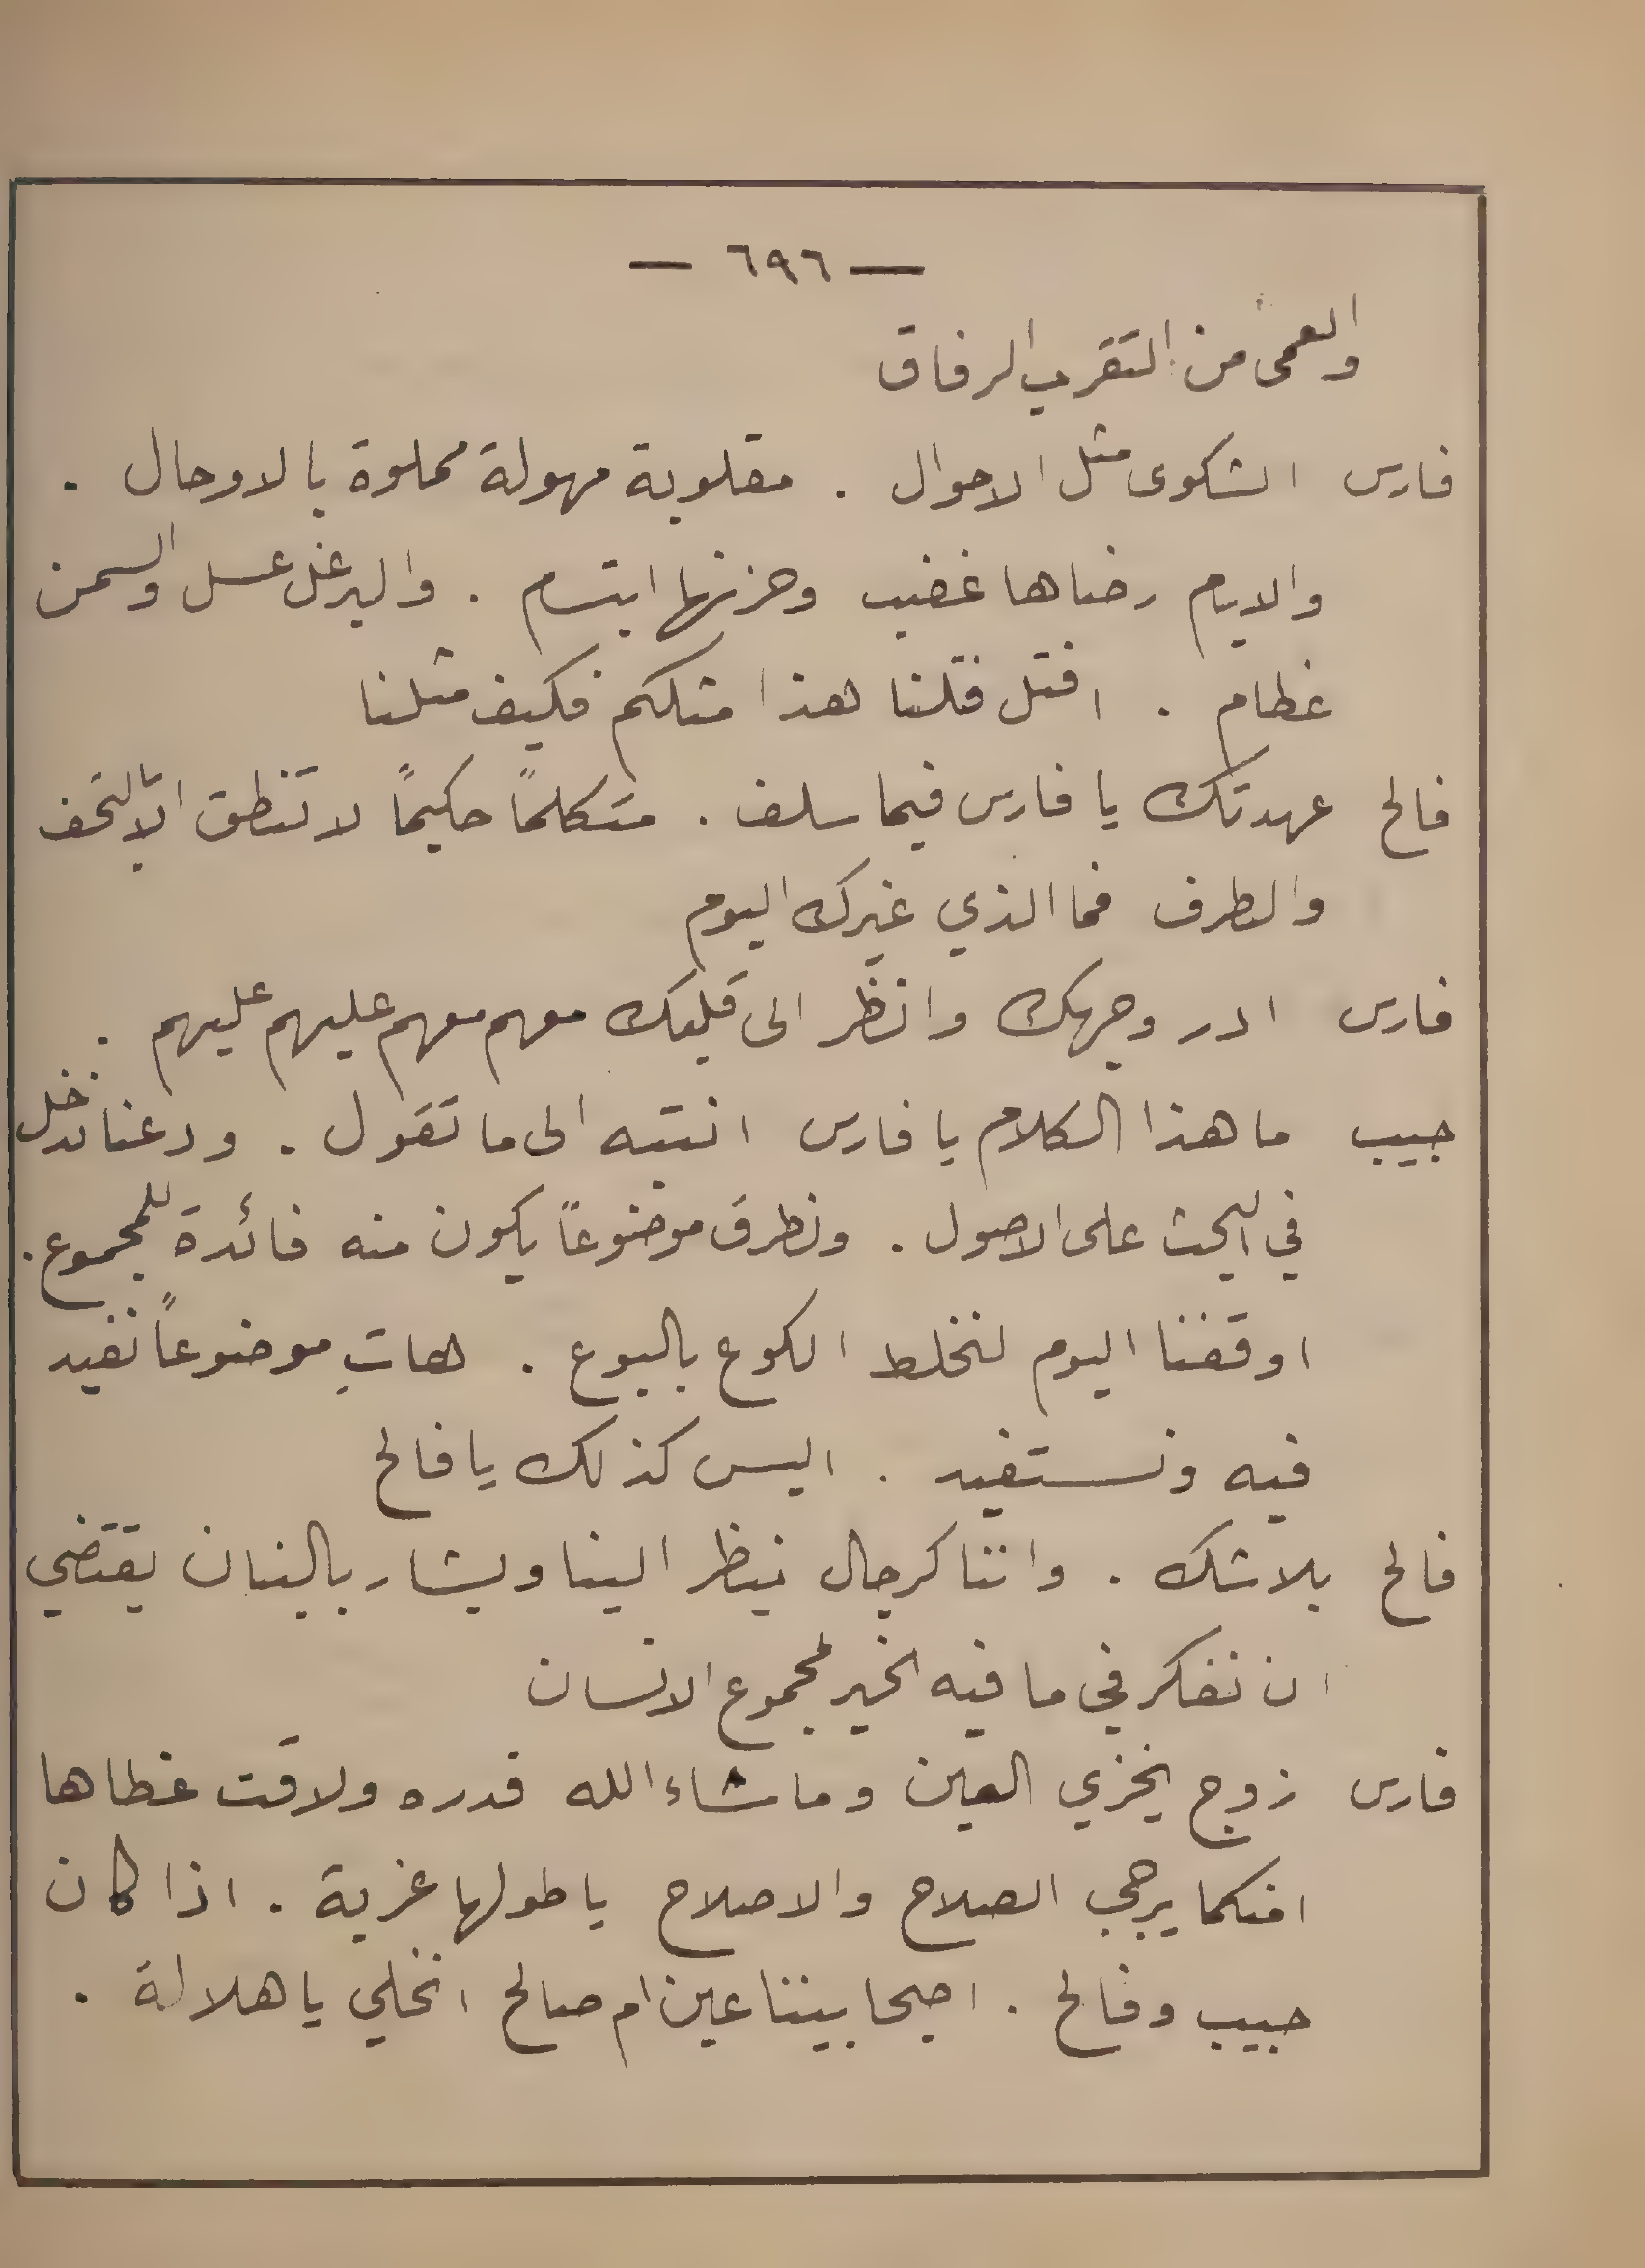 — ٦٩٦ —
والعمى من التقرب الرفاق
فارس الشكوى مثل الاحوال . مقلوبة مهولة مملوة بالاوحال .
والايام رضاها غضب وحزنها ابتسام . والبرغل عسل والسمن
عظام . اقتل قتلنا هذا مثلكم فكيف مثلنا
فالح عهدتك يا فارس فيما سلف . متكلماً حكيماً لا تنطق الا بالتحف
والطرف فما الذي غيرك اليوم
فارس ادر وجهك وانظر الى قلبك معهم معهم عليهم عليهم .
حبيب ما هذا الكلام يا فارس انتبه الى ما تقول . ودعنا ندخل
في البحث على الاصول . ونطرق موضوعاً يكون منه فائدة للمجموع .
اوقفنا اليوم لنخلط الكوع بالبوع . هاتِ موضوعاً نفيد
فيه ونستفيد . اليس كذلك يا فالح
فالح بلا شك . واننا كرجال ينظر الينا ويشار بالبنان يقتضي
ان نفكر في ما فيه الخير لمجموع الانسان
فارس زوج يخزي العين وما شاء الله قدره ولاقت غطاها
افنكما يرجى الصلاح والاصلاح يا طولها غربة . اذا كان
حبيب وفالح . اصبحا بيننا عين ام صالح انخلي يا هلالة .